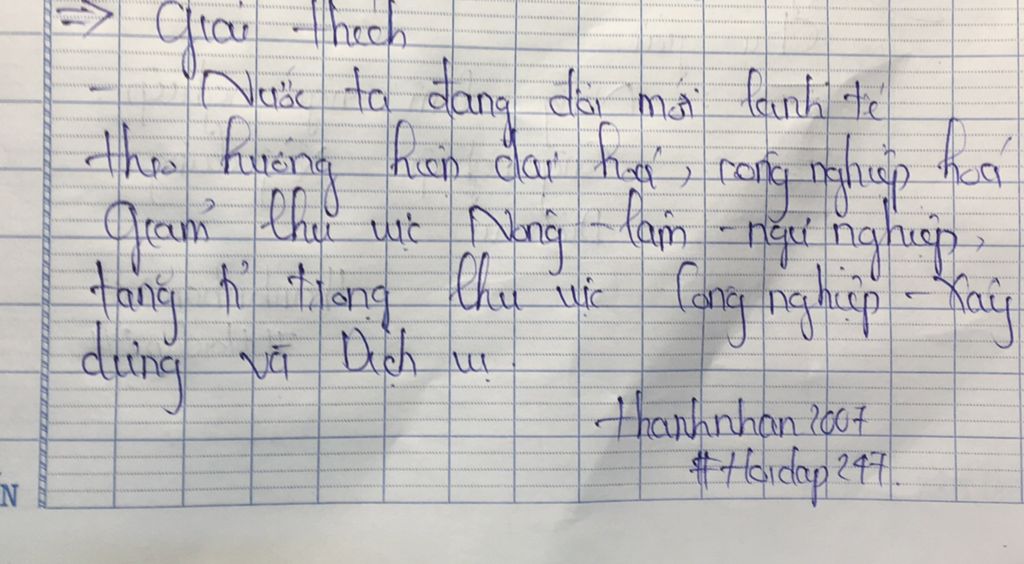 => Giải thích
- Nước ta đang đổi mới kinh tế
theo hướng hiện đại hoá, công nghiệp hoá
Giảm khu vực Nông - lâm - ngư nghiệp,
tăng tỉ trọng khu vực Công nghiệp - Xây
dựng và Dịch vụ.
thanhnhan2007
#Hoidap247.
N